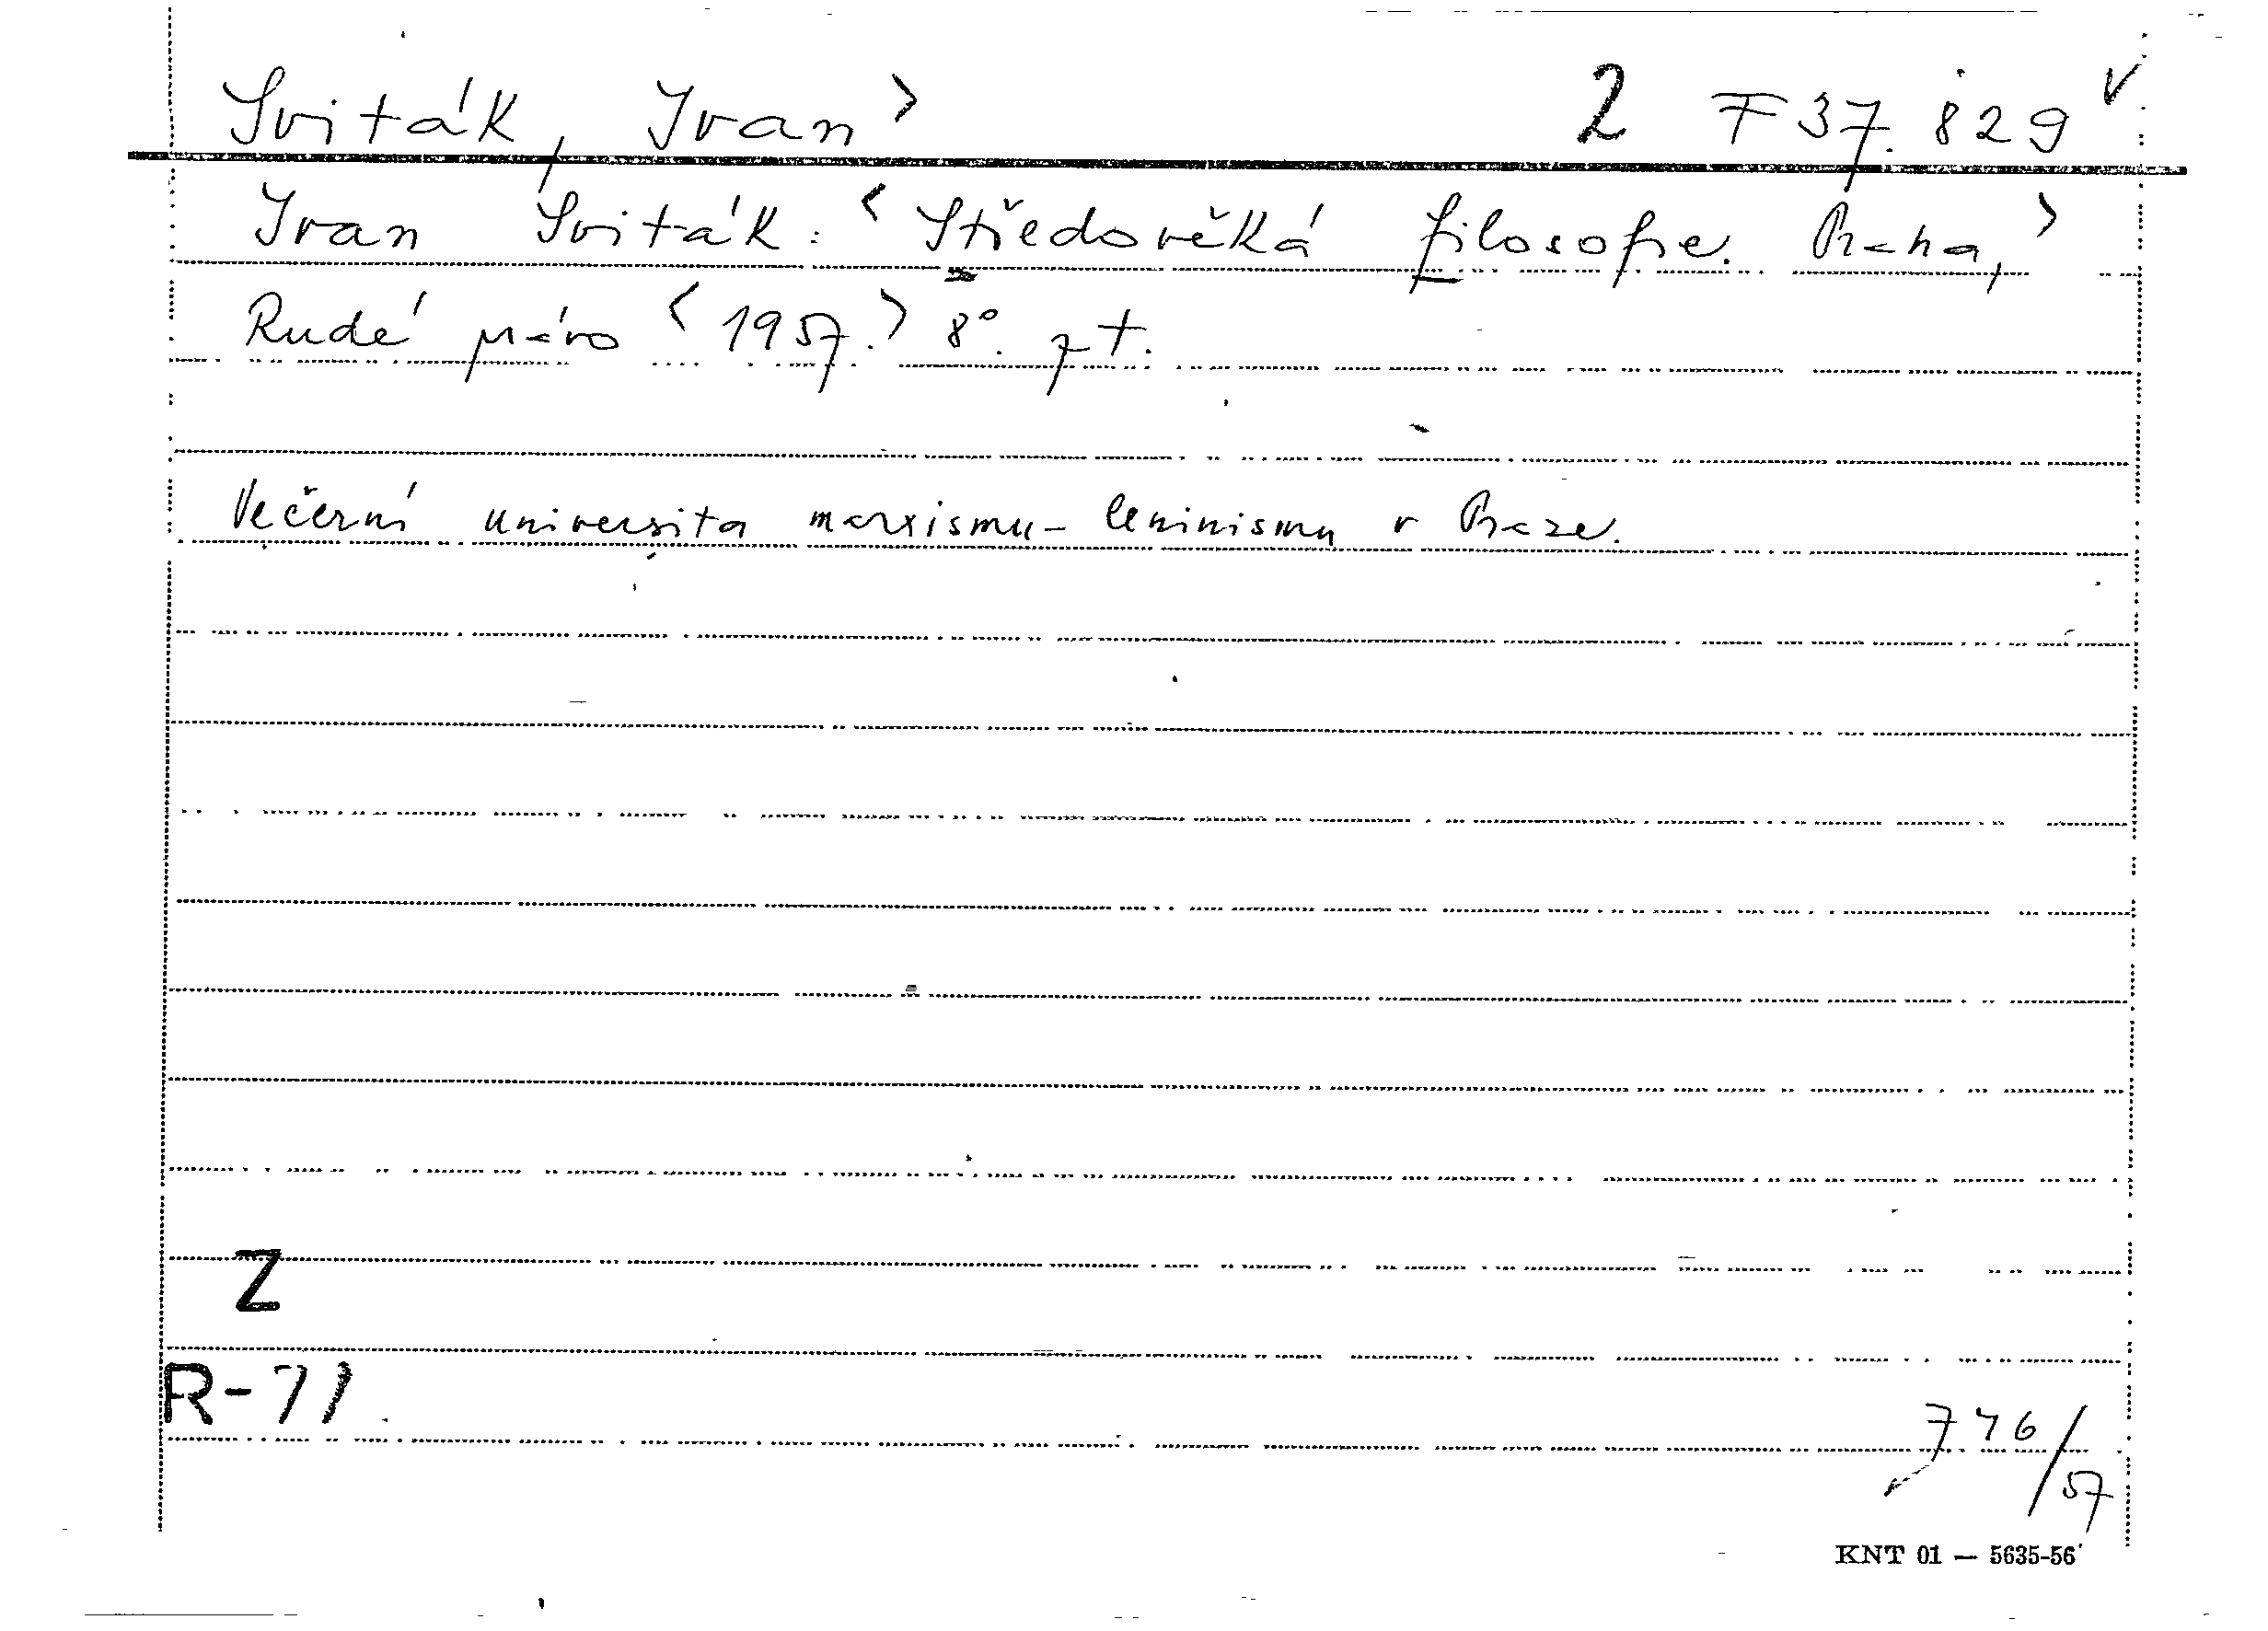 Sviták, Ivan> 2 F 37.829 V
Ivan Sviták: <Středověká filosofie. Praha,>
Rudé právo <1957.> 8°. zt.
Večerní universita marxismu-leninismu v Praze.
Z
R-71
746/57
KNT 01 — 5635-56